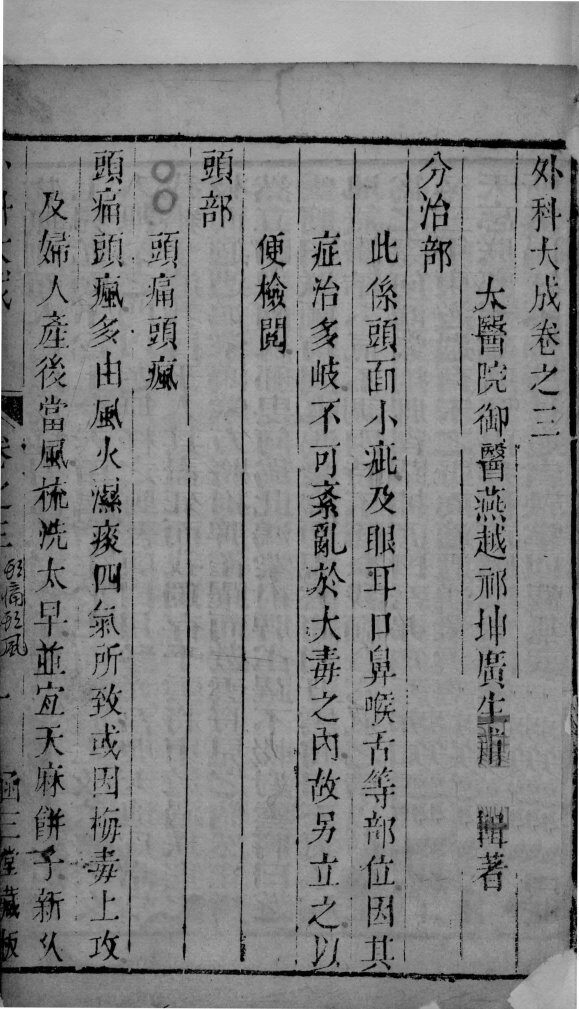 外科大成卷之三
太醫院御醫燕越祁坤廣生甫 輯著
分治部
此係頭面小疵及眼耳口鼻喉舌等部位因其
症治多岐不可紊亂於大毒之內故另立之以
便檢閱
頭部
○○頭痛頭瘋
頭痛頭瘋多由風火濕痰四氣所致或因梅毒上攻
及婦人產後當風梳洗太早並宜天麻餅子新久
外科大成 卷之三 一 函三堂藏板